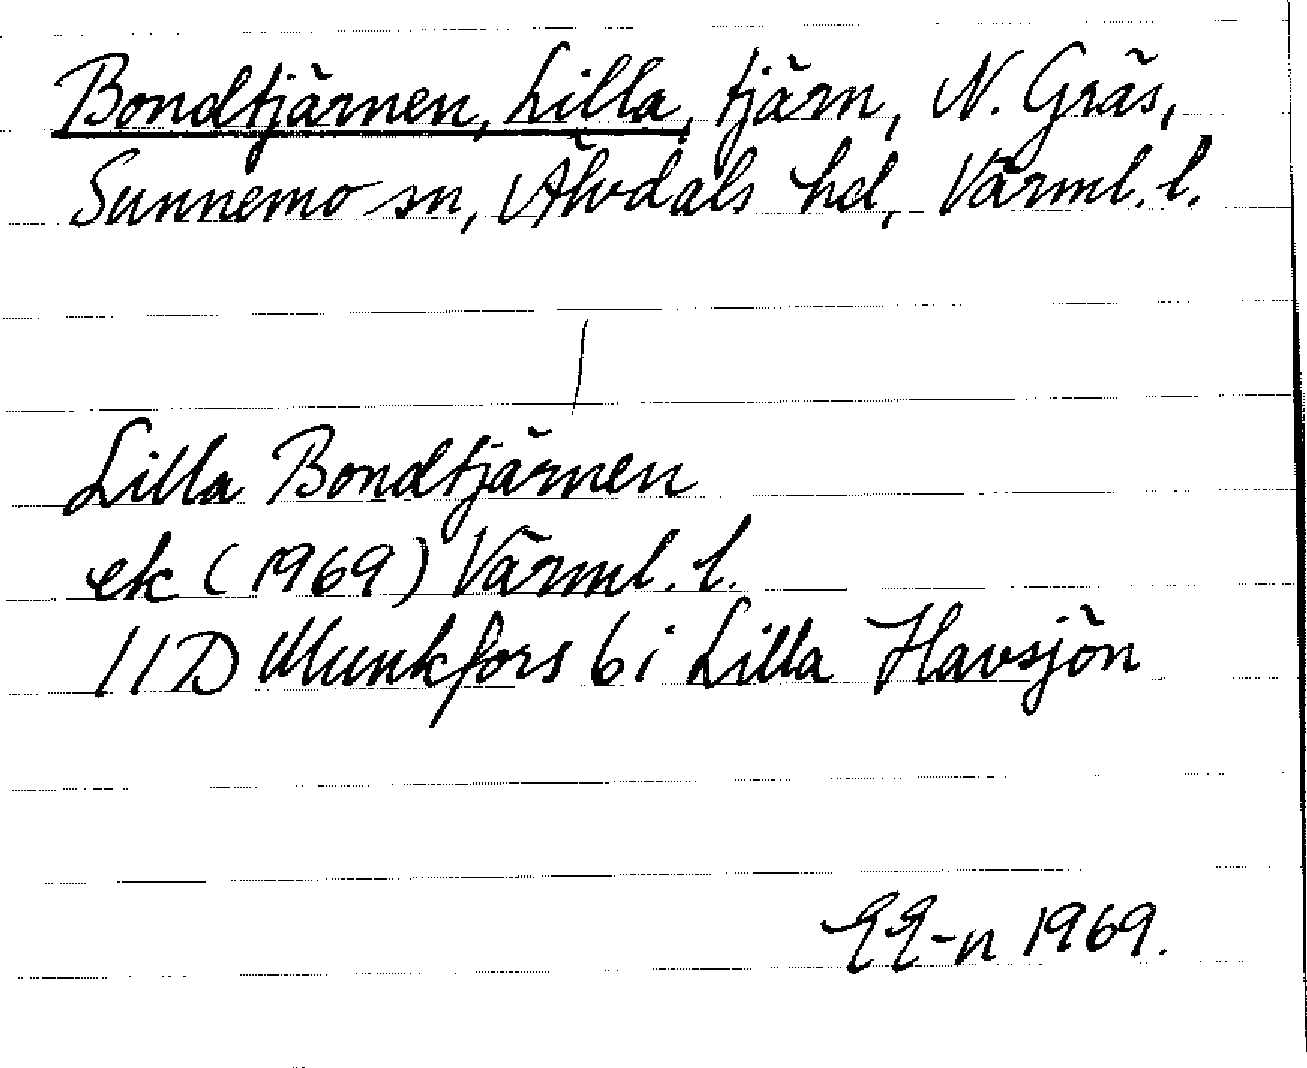 Bondtjärnen, Lilla, tjärn, N. Gräs,
Sunnemo sn, Älvdals hd, Värml. l.
Lilla Bondtjärnen
ek (1969) Värml. l.
11D Munkfors 6i Lilla Havsjön
1969.